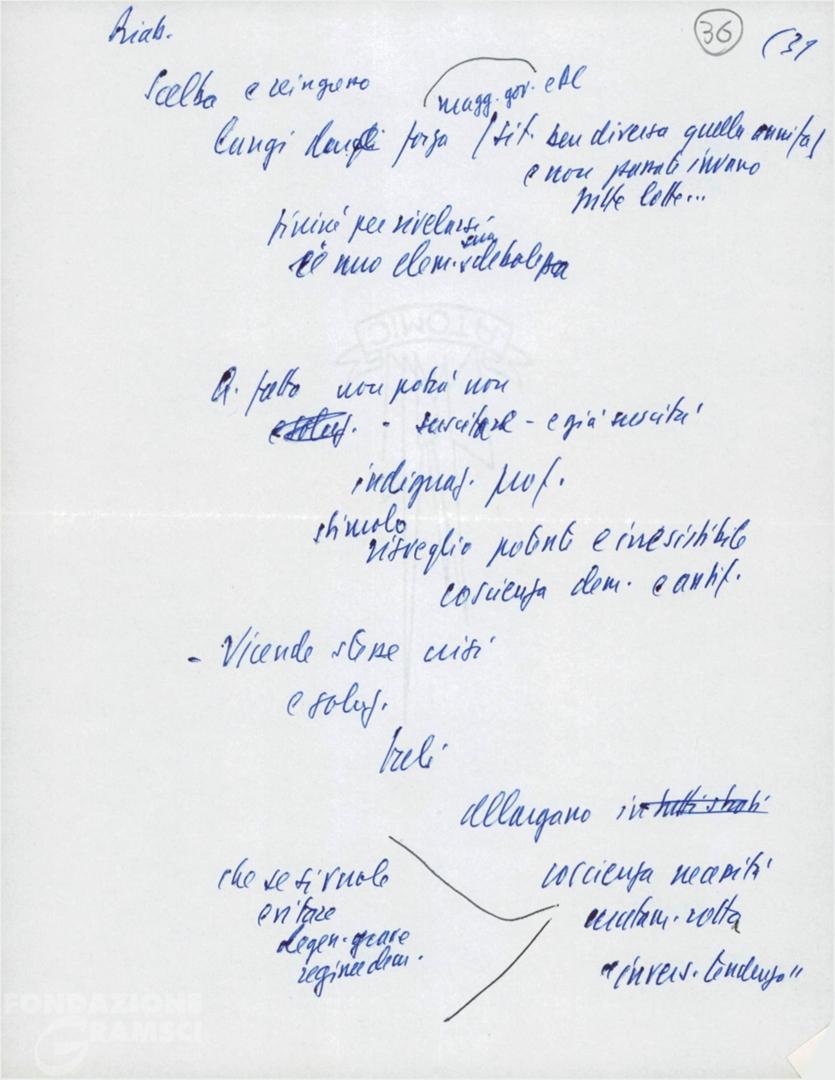 Riab.
36
(31
Scelba e reingreno
magg. gov. e DC
lungi dargli forza (sit. ben diversa quella anni
e non passati invano
tutte lotte...
finirà per rivelarsi
è nuo elem. sua debolezza
Q. fatto non potrà non
esoluz. - suscitare - e già suscita
indignaz. prof.
stimolo
risveglio potente e irresistibile
coscienza dem. e antif.
- Vicende stesse crisi
e soluz.
tali
allargano in tutti strati
che se si vuole
coscienza necessità
evitare
mutam. rotta
degen. grave
regime dem.
"invers. tendenza"
FONDAZIONE
GRAMSCI